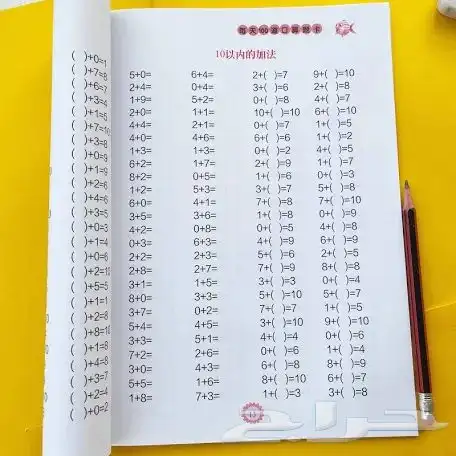 ( )+0=1
( )+7=8
( )+6=7
( )+3=4
( )+1=5
( )+7=10
( )+3=8
( )+0=9
( )+1=9
( )+2=6
( )+4=6
( )+3=5
( )+0=3
( )+1=4
( )+0=6
( )+2=10
( )+2=5
( )+1=1
( )+2=8
( )+8=10
( )+1=8
( )+4=8
( )+3=7
( )+2=4
( )+0=2
每天100道口算题卡
10以内的加法
5+0= 6+4= 2+( )=7 9+( )=10
2+4= 0+4= 3+( )=6 2+( )=8
1+9= 5+2= 0+( )=8 4+( )=7
2+0= 1+1= 10+( )=10 6+( )=10
4+4= 2+1= 0+( )=7 1+( )=5
4+0= 4+6= 6+( )=6 1+( )=2
1+3= 1+3= 0+( )=2 4+( )=5
6+2= 1+7= 2+( )=9 1+( )=7
8+2= 0+5= 1+( )=6 0+( )=3
1+2= 5+3= 3+( )=7 5+( )=8
6+0= 4+1= 7+( )=8 7+( )=10
3+5= 3+6= 1+( )=8 0+( )=9
4+2= 0+8= 0+( )=5 4+( )=8
0+3= 6+3= 4+( )=9 6+( )=9
2+6= 2+3= 5+( )=6 2+( )=5
2+8= 2+7= 7+( )=9 8+( )=8
3+1= 1+5= 3+( )=3 0+( )=4
8+0= 3+7= 5+( )=10 5+( )=7
0+2= 3+2= 7+( )=7 1+( )=5
5+4= 4+5= 3+( )=10 9+( )=10
3+3= 5+1= 4+( )=4 0+( )=6
7+2= 6+1= 0+( )=6 1+( )=4
3+0= 4+3= 6+( )=8 8+( )=9
5+5= 1+6= 8+( )=10 6+( )=7
1+8= 7+3= 1+( )=3 3+( )=8
حراج